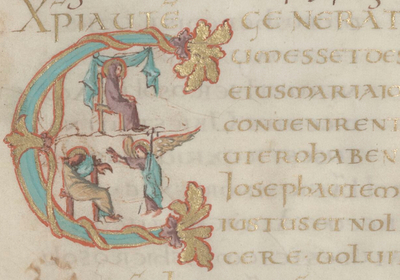 XPI AUTE GENERAT
CUM ESSET DES
EIUS MARIA IO
CONUENIRENT
UTERO HABEN
IOSEPH AUTEM
IUSTUS ET NOL
CERE UOLUI